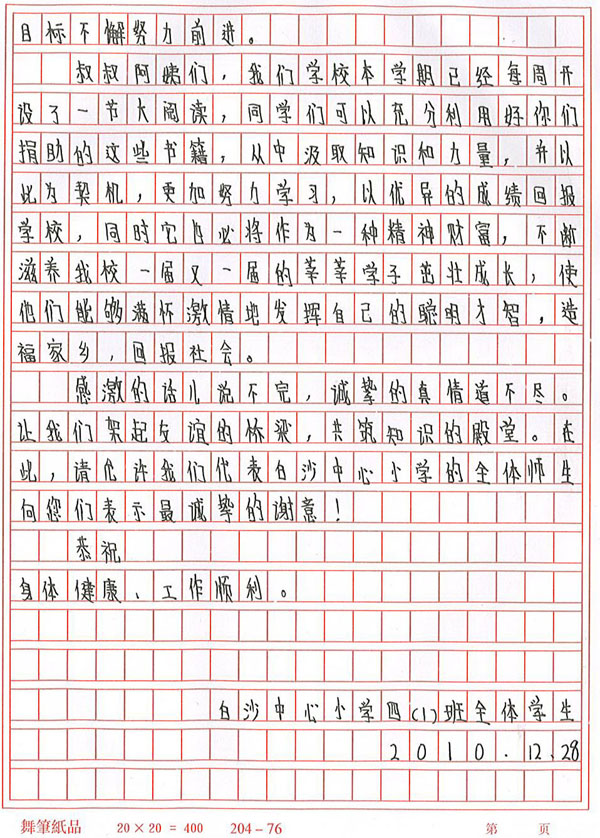 目标不懈努力前进。
叔叔阿姨们，我们学校本学期已经每周开
设了一节大阅读，同学们可以充分利用好你们
捐助的这些书籍，从中汲取知识和力量，并以
此为契机，更加努力学习，以优异的成绩回报
学校，同时它也必将作为一种精神财富，不断
滋养我校一届又一届的莘莘学子茁壮成长，使
他们能够满怀激情地发挥自己的聪明才智，造
福家乡，回报社会。
感激的话儿说不完，诚挚的真情道不尽。
让我们架起友谊的桥梁，共筑知识的殿堂。在
此，请允许我们代表白沙中心小学的全体师生
向您们表示最诚挚的谢意！
恭祝
身体健康、工作顺利。
白沙中心小学四(1)班全体学生
2010.12.28
舞筆紙品 20×20=400 204-76 第 页